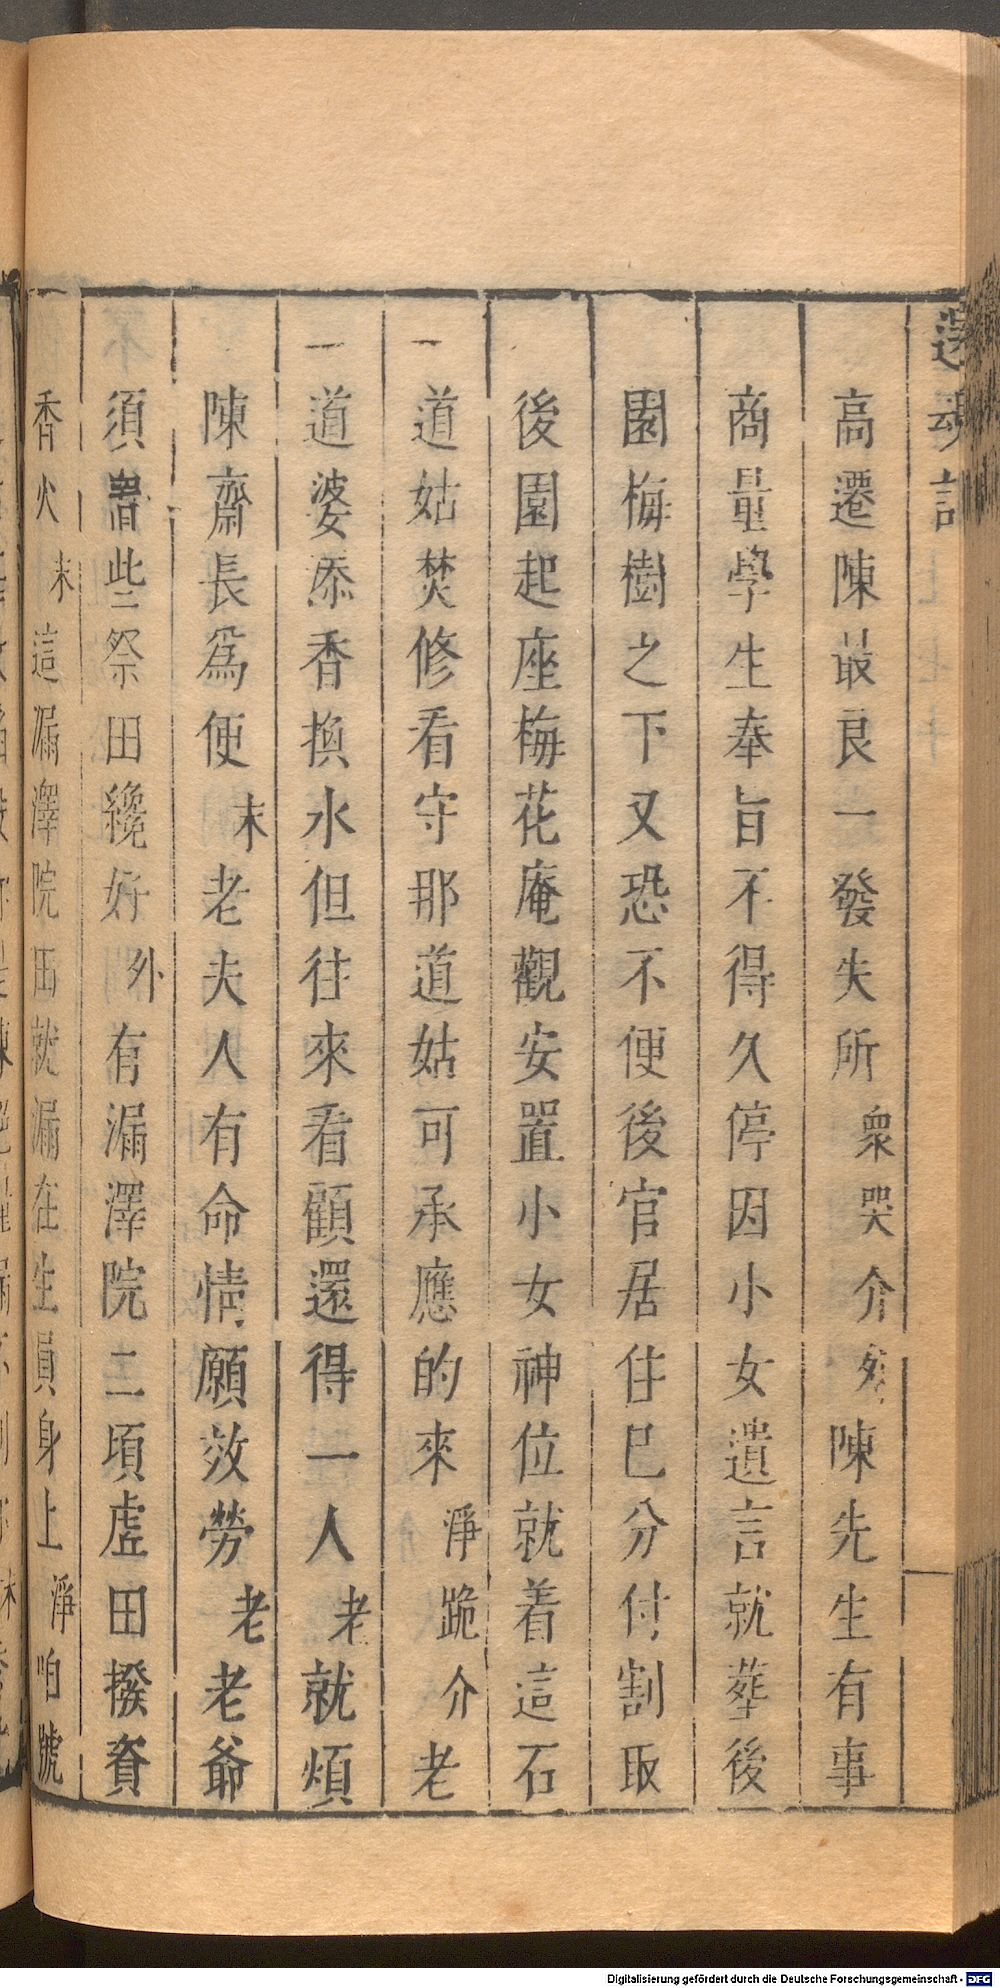 還魂記
高遷陳最良一發失所衆哭介外陳先生有事
商量學生奉旨不得久停因小女遺言就葬後
園梅樹之下又恐不便後官居住已分付割取
後園起座梅花庵觀安置小女神位就着這石
道姑焚修看守那道姑可承應的來淨跪介老
道婆添香換水但往來看顧還得一人老就煩
陳齋長爲便末老夫人有命情願效勞老老爺
須置些祭田纔好外有漏澤院二頃虛田撥資
香火末這漏澤院田就漏在生員身上淨咱號
Digitalisierung gefördert durch die Deutsche Forschungsgemeinschaft - DFG